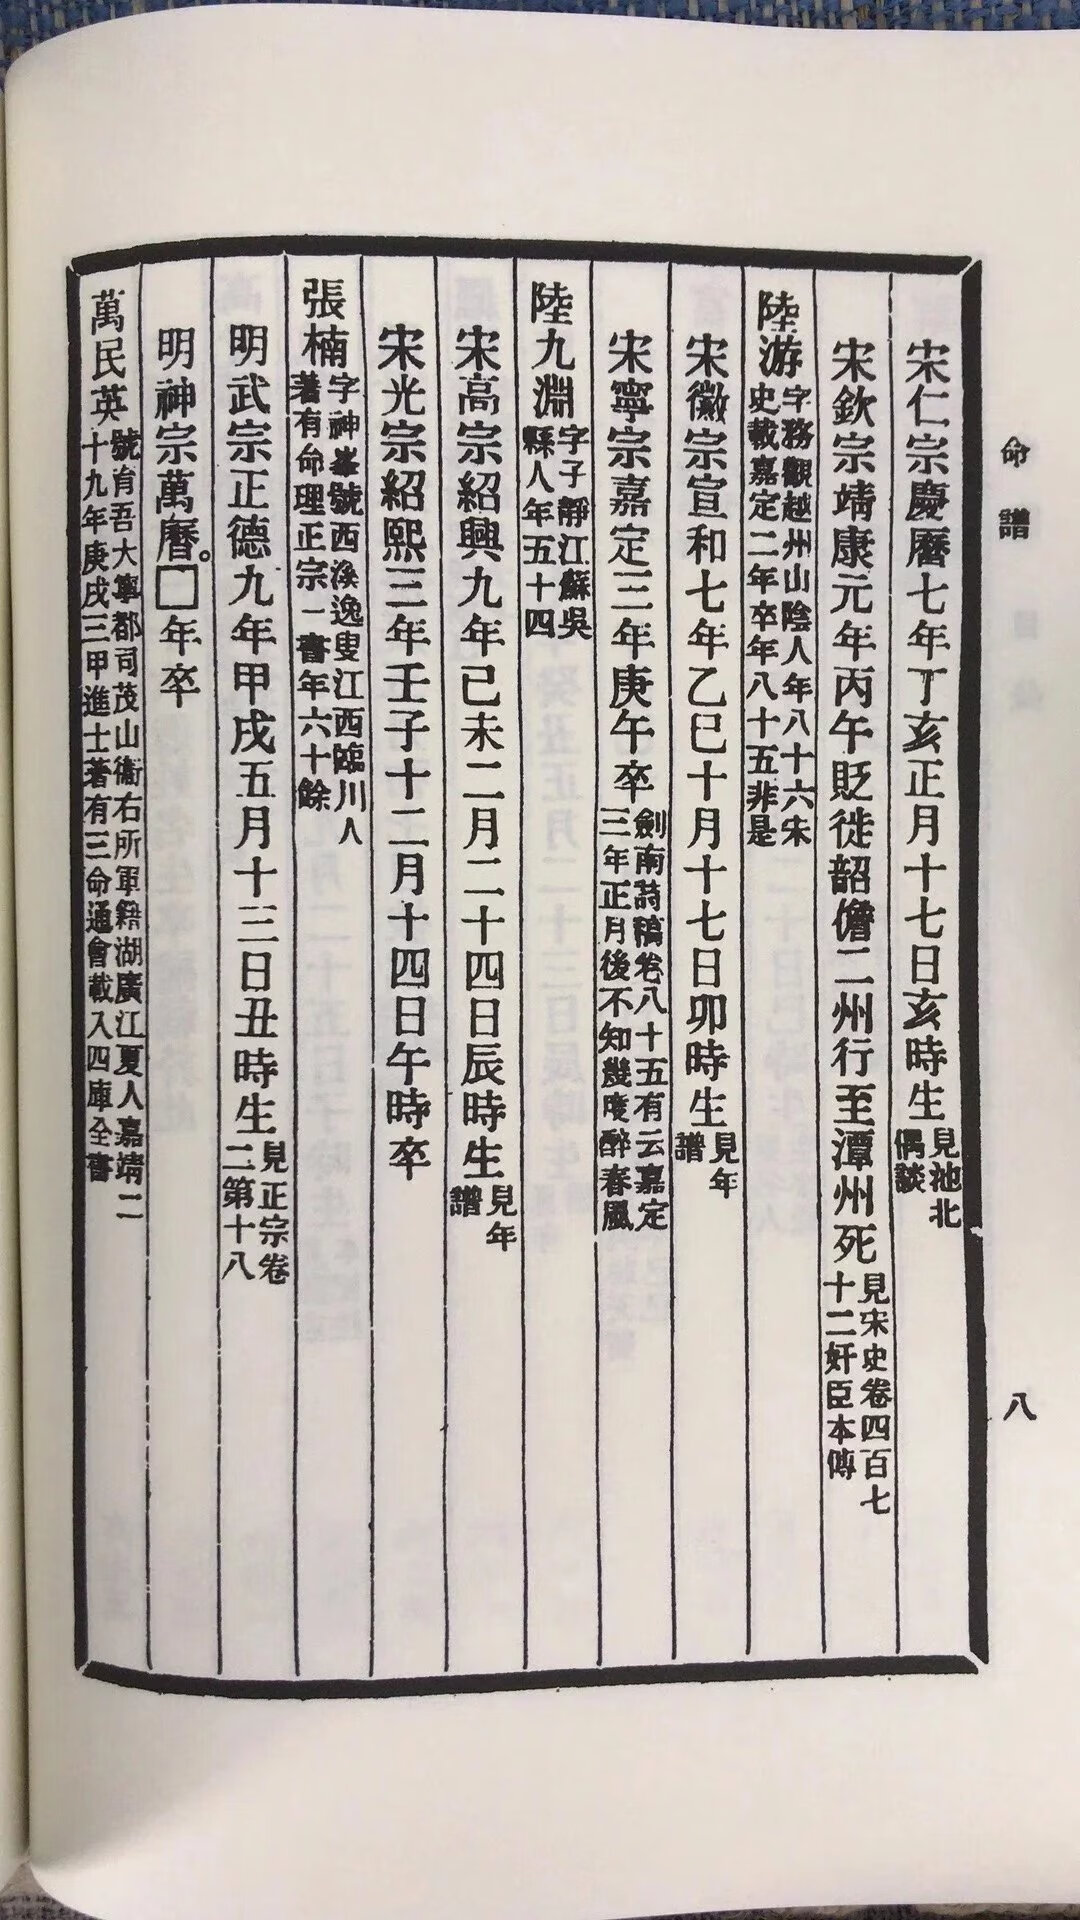 命譜
八
宋仁宗慶曆七年丁亥正月十七日亥時生見池北偶談
宋欽宗靖康元年丙午貶徙韶儋二州行至潭州死見宋史卷四百七十二奸臣本傳
陸游字務觀越州山陰人年八十六宋史載嘉定二年卒年八十五非是
宋徽宗宣和七年乙巳十月十七日卯時生見年譜
宋寧宗嘉定三年庚午卒劍南詩稿卷八十五有云嘉定三年正月後不知幾度醉春風
陸九淵字子靜江蘇吳縣人年五十四
宋高宗紹興九年己未二月二十四日辰時生見年譜
宋光宗紹熙三年壬子十二月十四日午時卒
張楠字神峯號西溪逸叟江西臨川人著有命理正宗一書年六十餘
明武宗正德九年甲戌五月十三日丑時生見正宗卷二第十八
明神宗萬曆。□年卒
萬民英號育吾大寧都司茂山衞右所軍籍湖廣江夏人嘉靖二十九年庚戌三甲進士著有三命通會載入四庫全書